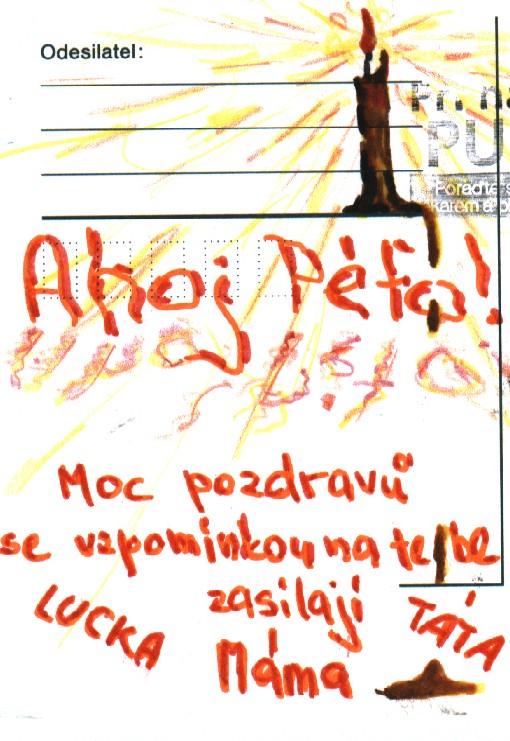 Odesilatel:
Př. n
PU
Poraďte s
Ahoj Péťo!
Moc pozdravů
se vzpomínkou na tebe
zasílají
LUCKA
TÁTA
Máma